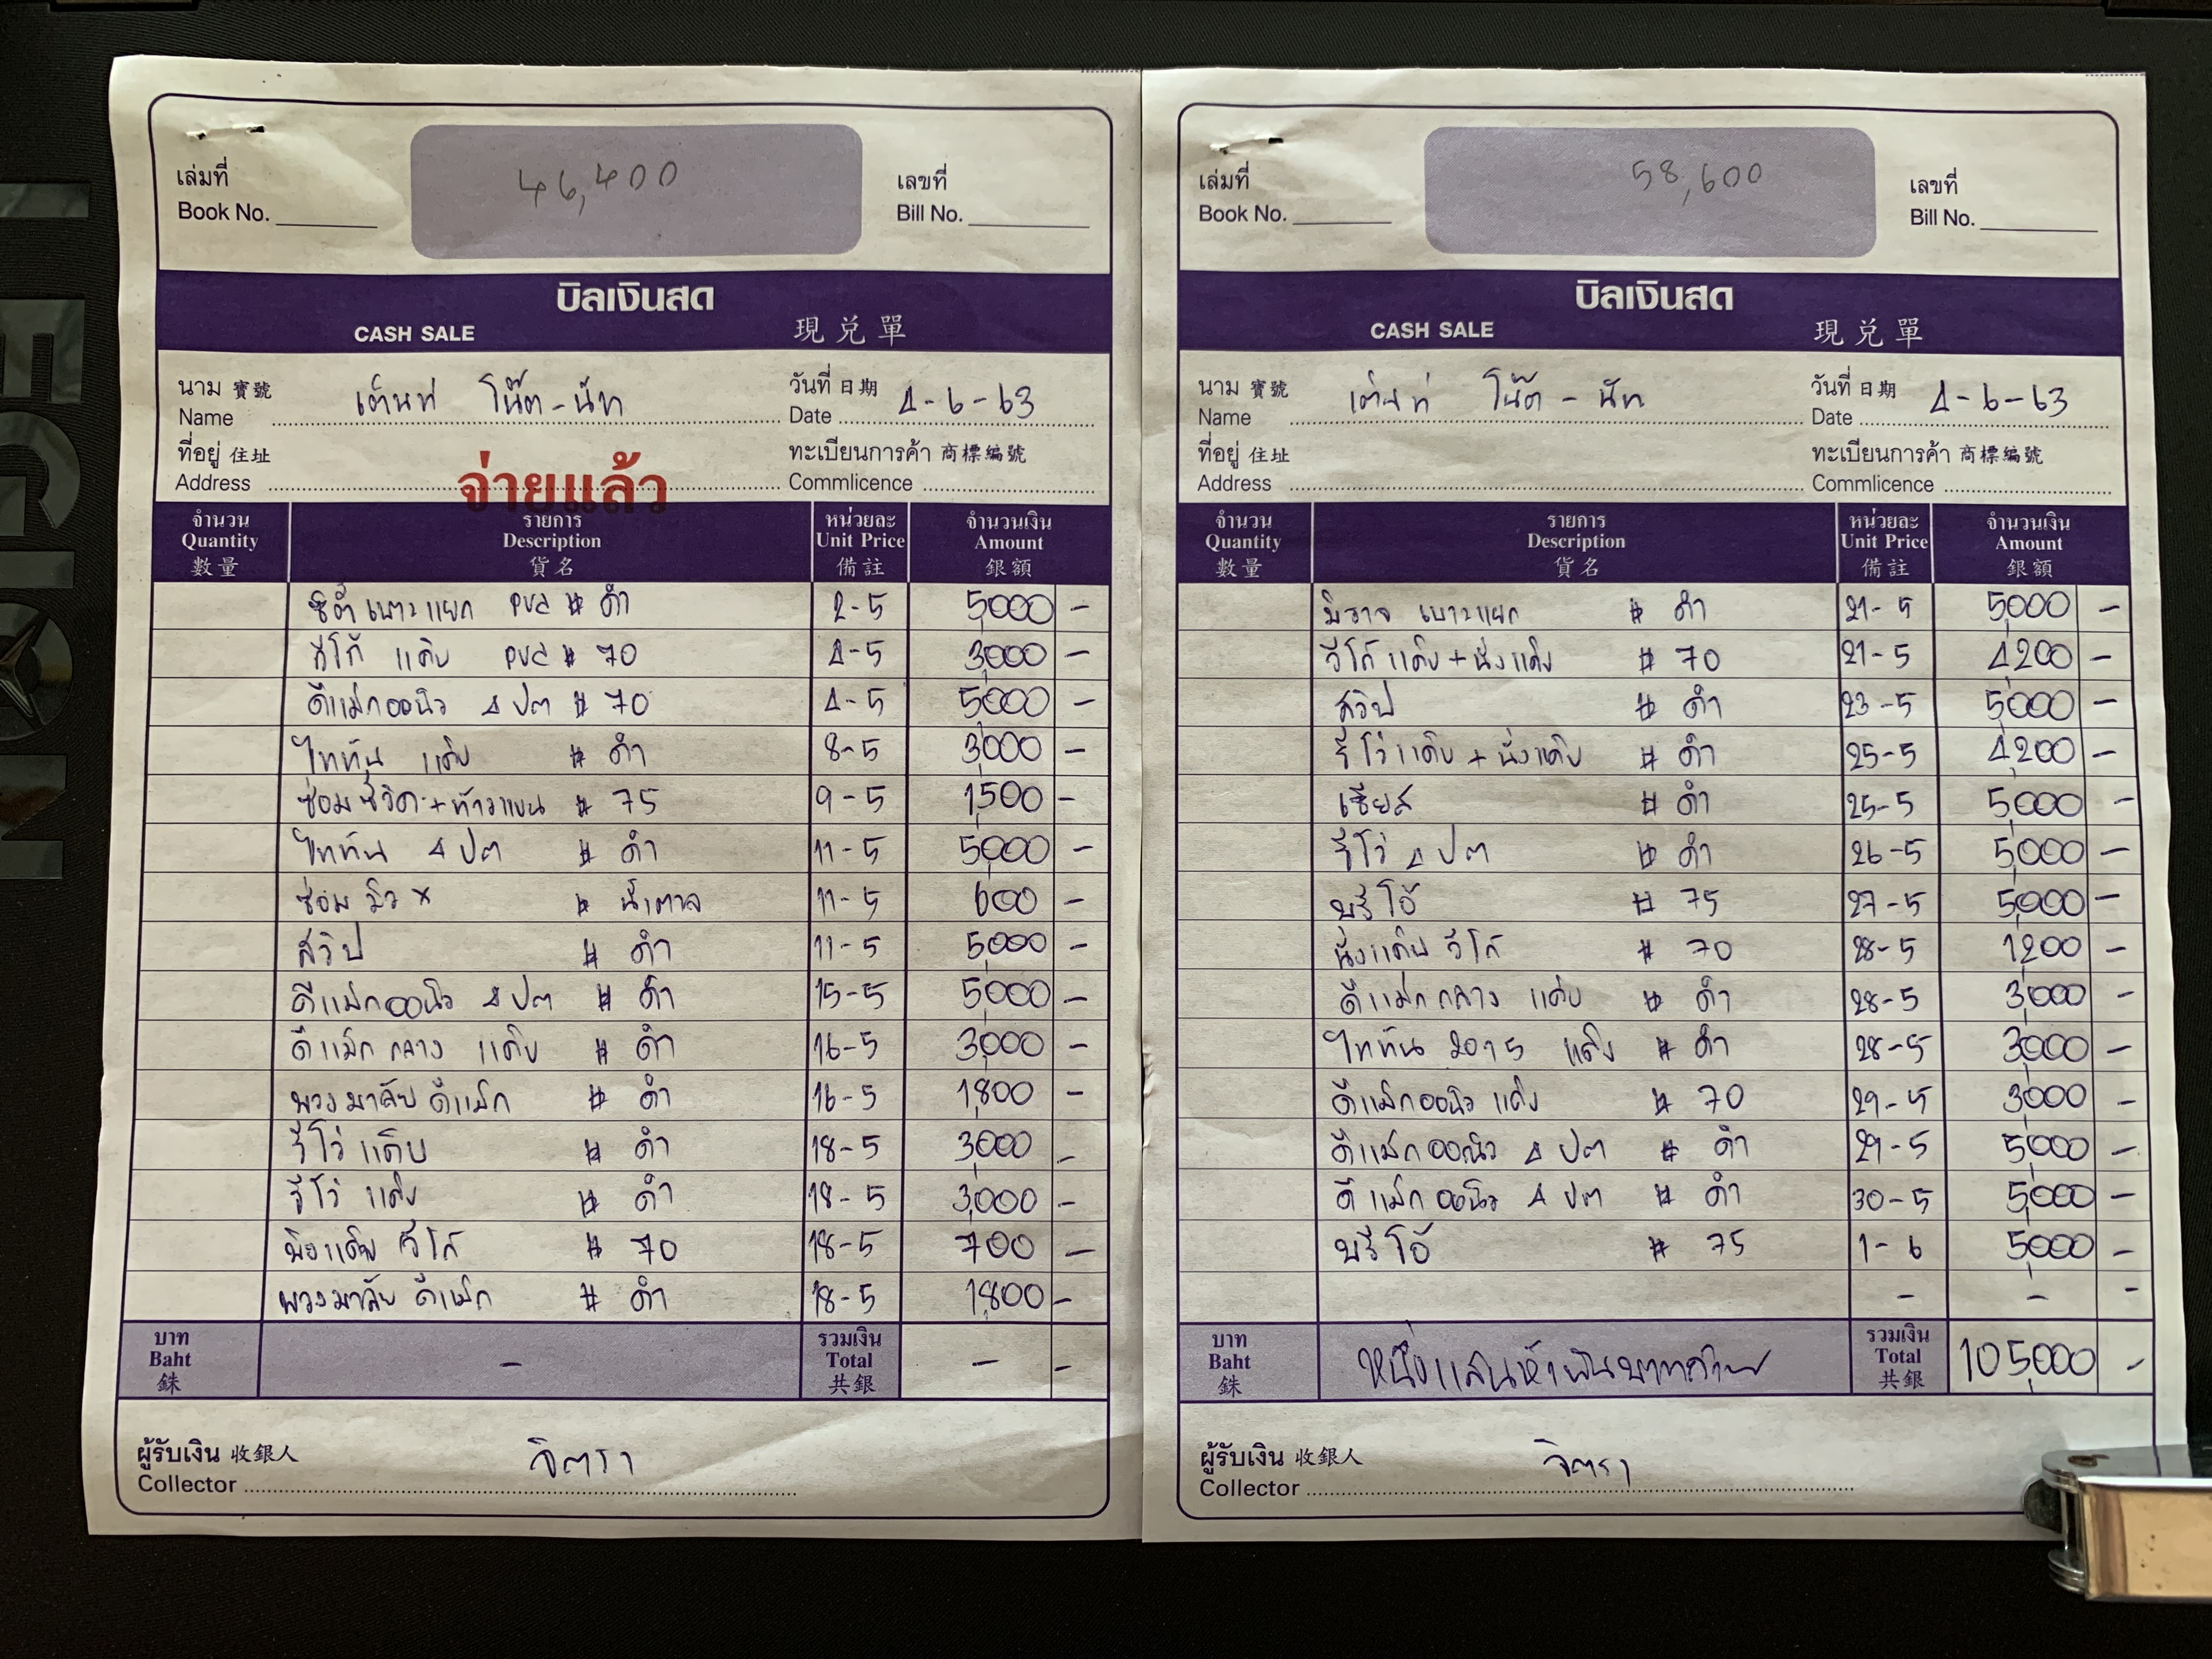 46,400
เล่มที่
Book No.
เลขที่
Bill No.
บิลเงินสด
CASH SALE 現兌單
นาม 寶號
Name เต็นท์ โน๊ต-นัท
วันที่ 日期
Date 4-6-63
ที่อยู่ 住址
Address
ทะเบียนการค้า 商標編號
Commlicence
จ่ายแล้ว
จำนวน รายการ หน่วยละ จำนวนเงิน
Quantity Description Unit Price Amount
數量 貨名 備註 銀額
ซิตี้ เบาะแยก PVC # ดำ 2-5 5,000 -
วีโก้ แค็บ PVC # 70 4-5 3,000 -
ดีแม็กออนิว 4 ปต # 70 4-5 5,000 -
ไททัน แค็บ # ดำ 8-5 3,000 -
ซ่อมซีวิค+ท้าวแขน # 75 9-5 1,500 -
ไททัน 4 ปต # ดำ 11-5 5,000 -
ซ่อม มิว X # น้ำตาล 11-5 600 -
สวิป # ดำ 11-5 5,000 -
ดีแม็กออนิว 4 ปต # ดำ 15-5 5,000 -
ดีแม็ก กลาง แค็บ # ดำ 16-5 3,000 -
พวงมาลัย ดีแม็ก # ดำ 16-5 1,800 -
รีโว่ แค็บ # ดำ 18-5 3,000 -
รีโว่ แค็บ # ดำ 18-5 3,000 -
แค็บ วีโก้ # 70 18-5 700 -
พวงมาลัย ดีแม็ก # ดำ 18-5 1,800 -
บาท
Baht
銖
-
รวมเงิน
Total
共銀
- -
ผู้รับเงิน 收銀人
Collector จิตรา
58,600
เล่มที่
Book No.
เลขที่
Bill No.
บิลเงินสด
CASH SALE 現兌單
นาม 寶號
Name เต็นท์ โน๊ต - นัท
วันที่ 日期
Date 4-6-63
ที่อยู่ 住址
Address
ทะเบียนการค้า 商標編號
Commlicence
จำนวน รายการ หน่วยละ จำนวนเงิน
Quantity Description Unit Price Amount
數量 貨名 備註 銀額
มิราจ เบาะแยก # ดำ 21-5 5,000 -
วีโก้ แค็บ+นั่งแค็บ # 70 21-5 4,200 -
สวิป # ดำ 23-5 5,000 -
รีโว่ แค็บ+นั่งแค็บ # ดำ 25-5 4,200 -
เซียส # ดำ 25-5 5,000 -
รีโว่ 4 ปต # ดำ 26-5 5,000 -
บรีโอ้ # 75 27-5 5,000 -
นั่งแค็บ วีโก้ # 70 28-5 1,200 -
ดีแม็ก กลาง แค็บ # ดำ 28-5 3,000 -
ไททัน 2015 แค็บ # ดำ 28-5 3,000 -
ดีแม็กออนิว แค็บ # 70 29-5 3,000 -
ดีแม็กออนิว 4 ปต # ดำ 29-5 5,000 -
ดีแม็ก ออนิว 4 ปต # ดำ 30-5 5,000 -
บรีโอ้ # 75 1-6 5,000 -
- - -
บาท
Baht
銖
หนึ่งแสนห้าพันบาทถ้วน
รวมเงิน
Total
共銀
105,000 -
ผู้รับเงิน 收銀人
Collector จิตรา